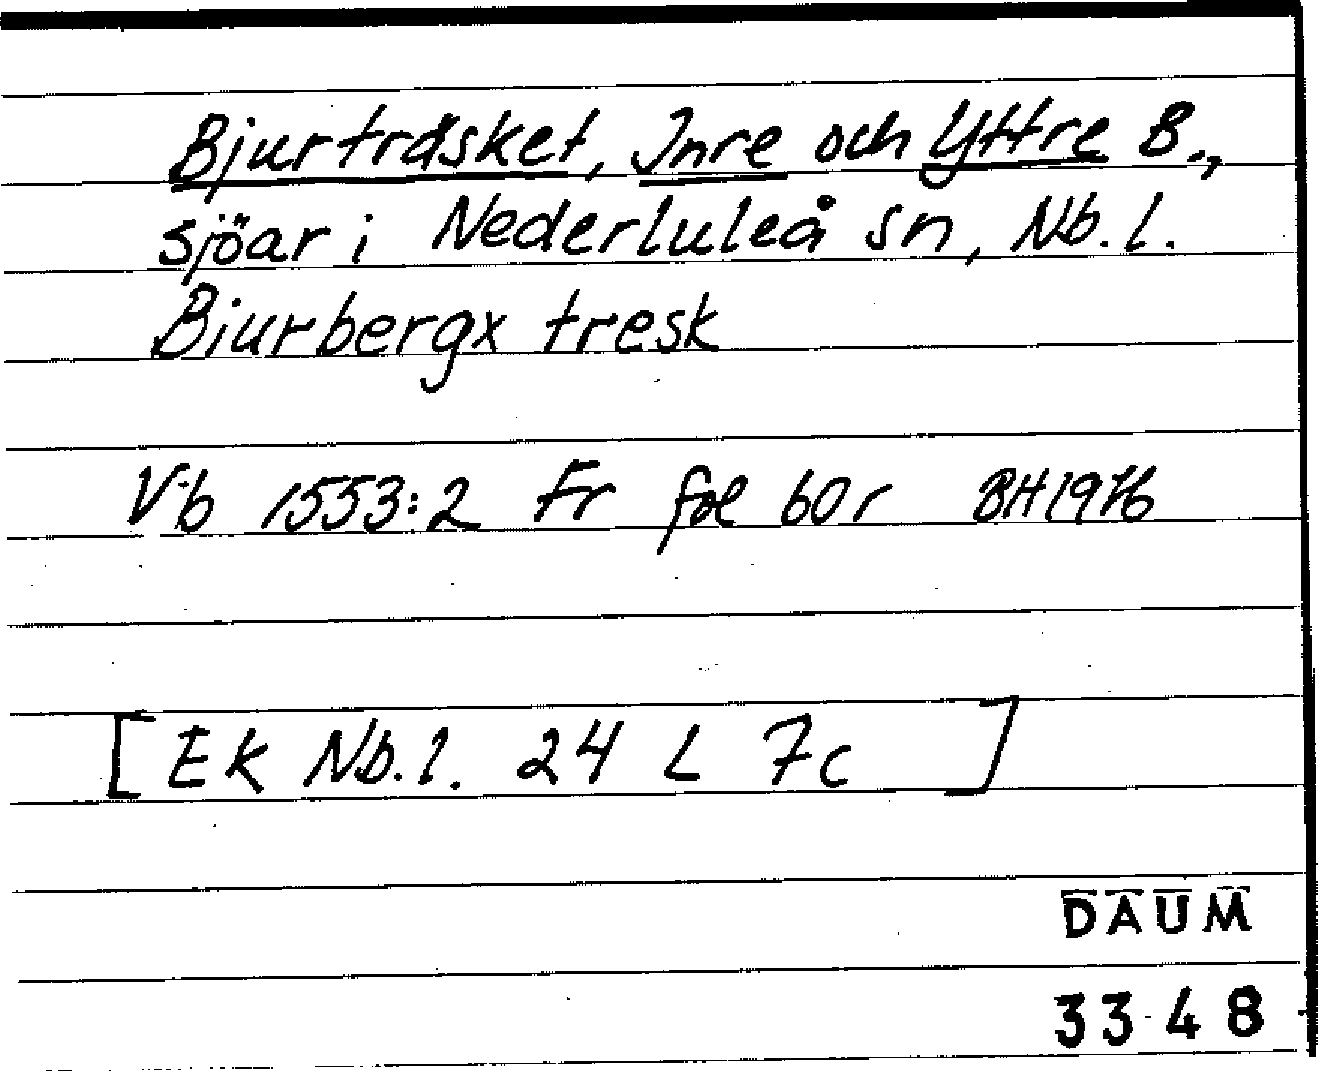 Bjurträsket, Inre och Yttre B.,
sjöar i Nederluleå sn, Nb. l.
Biurbergx tresk
Vb 1553:2 Fr fol 60 r BH 1976
[Ek Nb. l. 24 L 7c ]
DAUM
3348